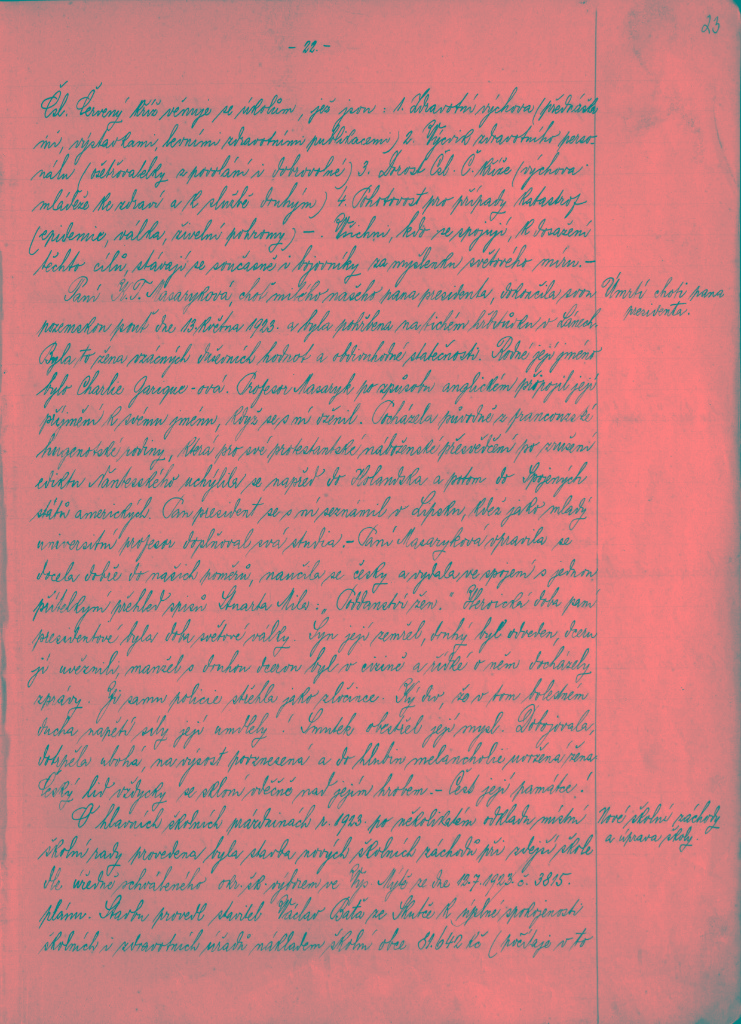 23
- 22. -
Čsl. Červený kříž věnuje se úkolům, jež jsou: 1. Zdravotní výchova (přednáška-
mi, výstavkami, levnými zdravotními publikacemi) 2. Výcvik zdravotního perso-
nálu (ošetřovatelky z povolání i dobrovolné) 3. Dorost Čsl. Č. Kříže (výchova
mládeže ke zdraví a k službě druhým) 4. Pohotovost pro případy katastrof
(epidemie, válka, živelní pohromy) - . Všichni, kdo se spojují, k dosažení
těchto cílů, stávají se současně i bojovníky za myšlenku světového míru. -
Paní K. T. Masaryková, choť milého našeho pana presidenta, dokončila svou
pozemskou pouť dne 13. května 1923. a byla pohřbena na tichém hřbitůvku v Lánech.
Byla to žena vzácných duševních hodnot a obdivuhodné statečnosti. Rodné její jméno
bylo Charlie Garigue-ová. Profesor Masaryk po způsobu anglickém připojil její
příjmení k svému jménu, když se s ní oženil. Pocházela původně z francouzské
hugenotské rodiny, která pro své protestantské náboženské přesvědčení po zrušení
ediktu Nanteského uchýlila se napřed do Holandska a potom do Spojených
států amerických. Pan president se s ní seznámil v Lipsku, kdež jako mladý
universitní profesor doplňoval svá studia. - Paní Masaryková vpravila se
docela dobře do našich poměrů, naučila se česky a vydala ve spojení s jednou
přítelkyní přehled spisů Stuarta Mila: „Poddanství žen." Heroická doba paní
presidentové byla doba světové války. Syn její zemřel, druhý byl odveden, dceru
jí uvěznili, manžel s druhou dcerou byl v cizině a řídké o něm docházely
zprávy. Ji samu policie stíhla jako zločince. Ký div, že v tom bolestném
ducha napětí síly její umdlely! Smutek obestřel její mysl. Dobojovala,
dotrpěla ubohá, na výsost povznesená a do hlubin melancholie uvržená žena
Český lid vždycky se skloní vděčně nad jejím hrobem. - Čest její památce!
O hlavních školních prázdninách r. 1923. po několikatém odkladu místní
školní rady provedena byla stavba nových školních záchodů při zdejší škole
dle úředně schváleného okr. šk. výborem ve Vys. Mýtě ze dne 13.7.1923. č. 3815.
plánu. Stavbu provedl stavitel Václav Batá ze Skutče k úplné spokojenosti
školních i zdravotních úřadů nákladem školní obce 81.642 kč (počítaje v to
Úmrtí choti pana
presidenta.
Nové školní záchody
a úprava školy.